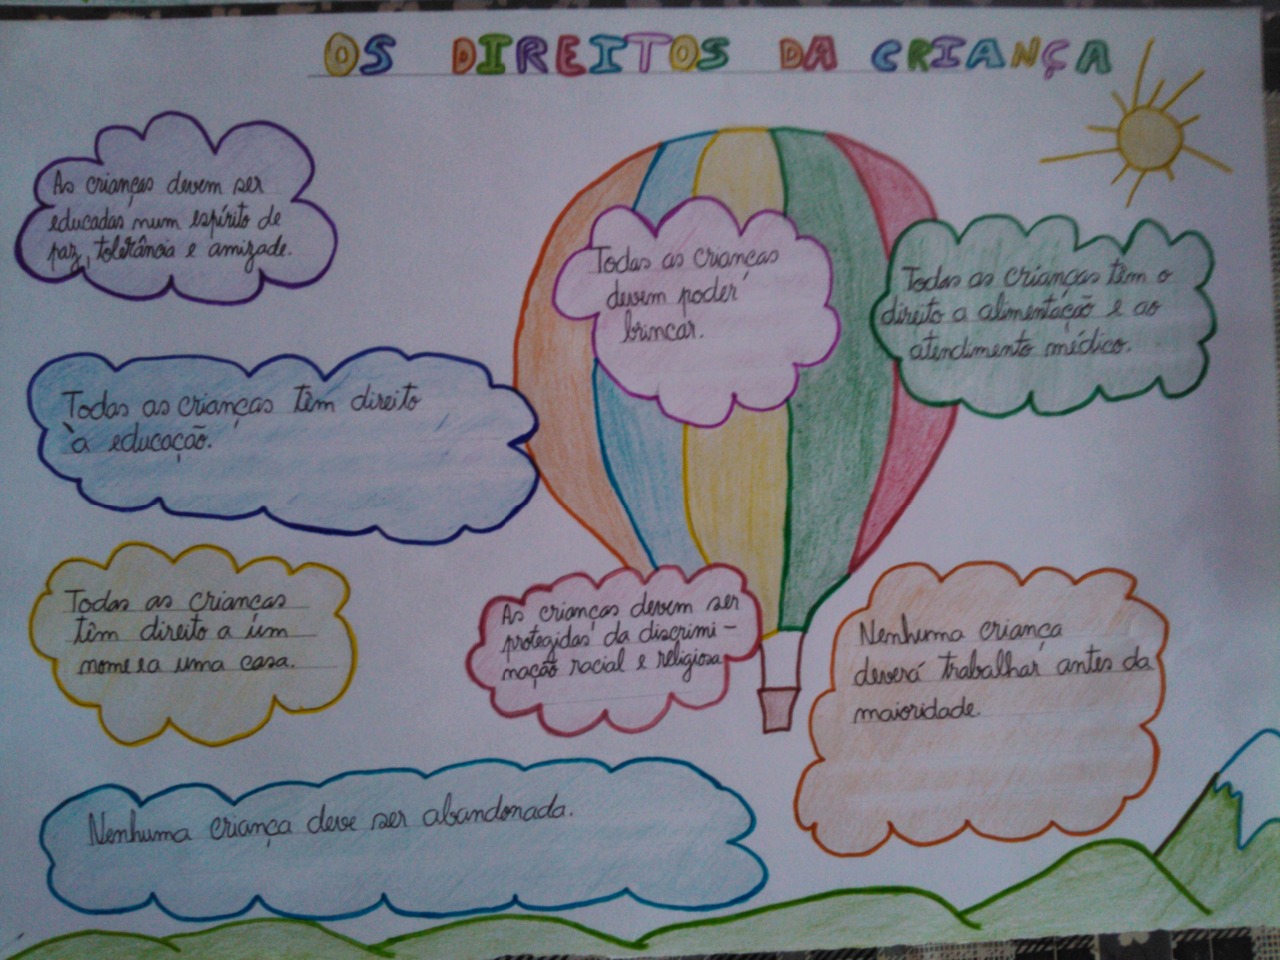 OS DIREITOS DA CRIANÇA
As crianças devem ser
educadas num espírito de
paz, tolerância e amizade.
Todas as crianças
devem poder
brincar.
Todas as crianças têm o
direito a alimentação e ao
atendimento médico.
Todas as crianças têm direito
à educação.
Todas as crianças
têm direito a um
nome e a uma casa.
As crianças devem ser
protegidas da discrimi-
nação racial e religiosa
Nenhuma criança
deverá trabalhar antes da
maioridade.
Nenhuma criança deve ser abandonada.